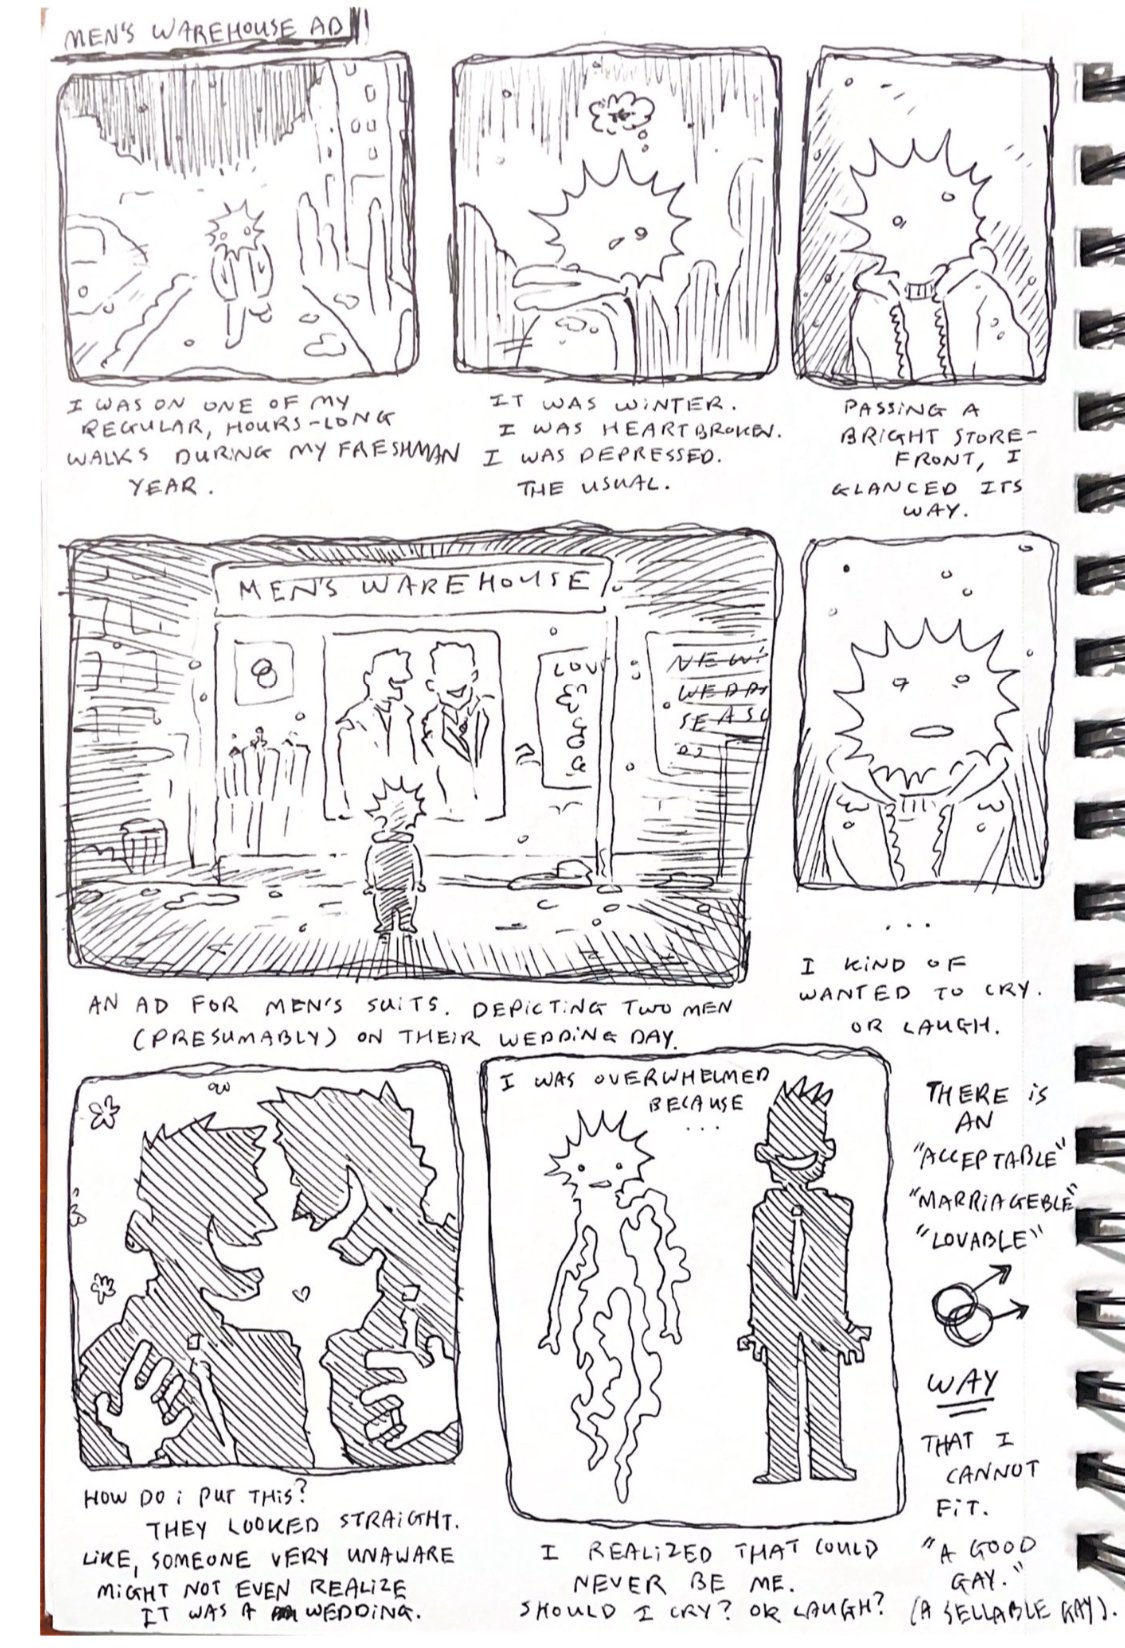 MEN'S WAREHOUSE AD
I WAS ON ONE OF MY
REGULAR, HOURS-LONG
WALKS DURING MY FRESHMAN
YEAR.
IT WAS WINTER.
I WAS HEARTBROKEN.
I WAS DEPRESSED.
THE USUAL.
PASSING A
BRIGHT STORE-
FRONT, I
GLANCED ITS
WAY.
MEN'S WAREHOUSE
LOV
NEW
WEDD
SEASO
AN AD FOR MEN'S SUITS. DEPICTING TWO MEN
(PRESUMABLY) ON THEIR WEDDING DAY.
...
I KIND OF
WANTED TO CRY.
OR LAUGH.
HOW DO I PUT THIS?
THEY LOOKED STRAIGHT.
LIKE, SOMEONE VERY UNAWARE
MIGHT NOT EVEN REALIZE
IT WAS A WEDDING.
I WAS OVERWHELMED
BECAUSE
...
I REALIZED THAT COULD
NEVER BE ME.
SHOULD I CRY? OR LAUGH?
THERE IS
AN
"ACCEPTABLE"
"MARRIAGEBLE"
"LOVABLE"
WAY
THAT I
CANNOT
FIT.
"A GOOD
GAY."
(A SELLABLE GAY).